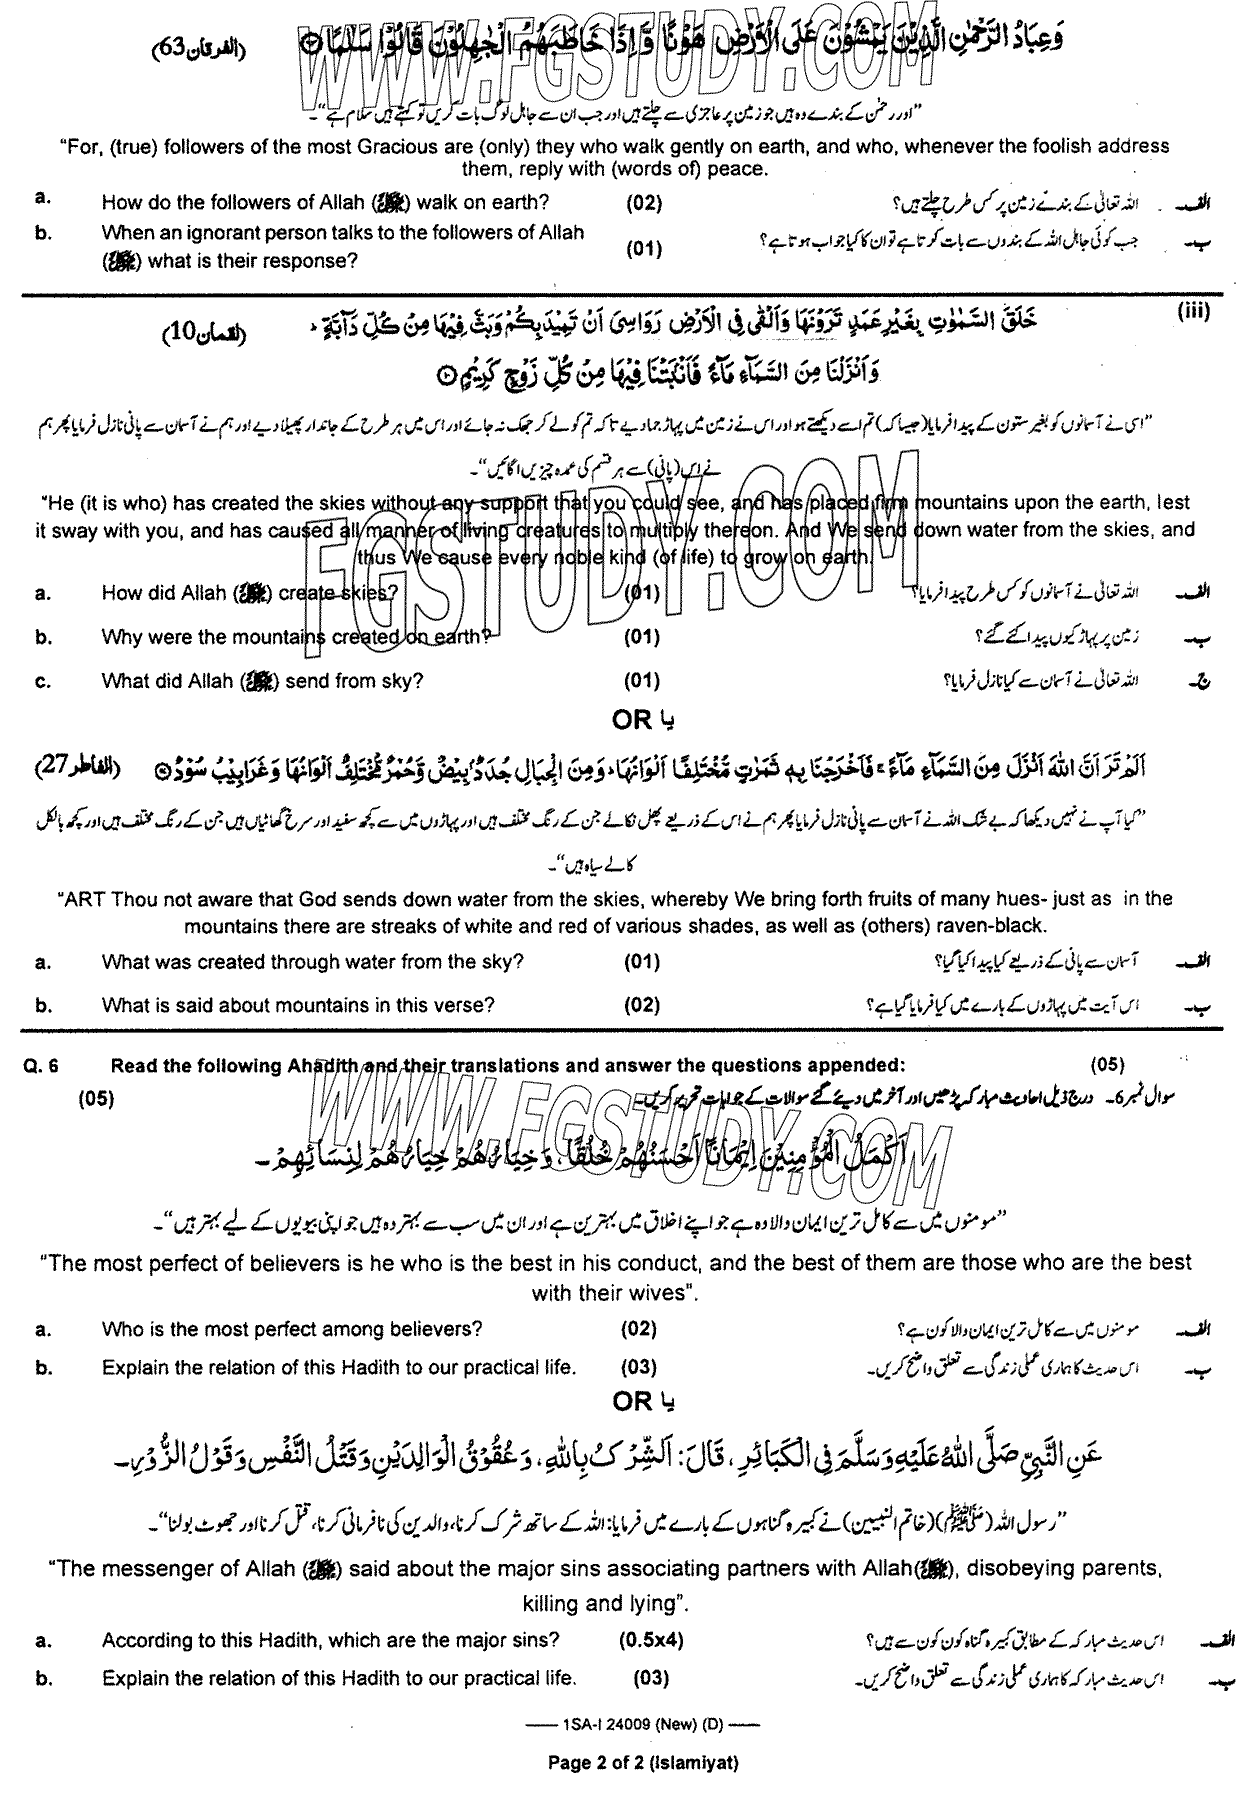 وَعِبَادُ الرَّحْمٰنِ الَّذِيْنَ يَمْشُوْنَ عَلَى الْاَرْضِ هَوْنًا وَّاِذَا خَاطَبَهُمُ الْجٰهِلُوْنَ قَالُوْا سَلٰمًا (الفرقان63)
WWW.FGSTUDY.COM
"اور رحمٰن کے بندے وہ ہیں جو زمین پر عاجزی سے چلتے ہیں اور جب ان سے جاہل لوگ بات کریں تو کہتے ہیں سلام ہے"۔
"For, (true) followers of the most Gracious are (only) they who walk gently on earth, and who, whenever the foolish address
them, reply with (words of) peace.
a. How do the followers of Allah (ﷻ) walk on earth? (02) الف۔ اللہ تعالیٰ کے بندے زمین پر کس طرح چلتے ہیں؟
b. When an ignorant person talks to the followers of Allah
(ﷻ) what is their response? (01) ب۔ جب کوئی جاہل اللہ کے بندوں سے بات کرتا ہے تو ان کا کیا جواب ہوتا ہے؟
(iii) خَلَقَ السَّمٰوٰتِ بِغَيْرِ عَمَدٍ تَرَوْنَهَا وَاَلْقٰى فِى الْاَرْضِ رَوَاسِىَ اَنْ تَمِيْدَ بِكُمْ وَبَثَّ فِيْهَا مِنْ كُلِّ دَآبَّةٍ ۚ (لقمان10)
وَاَنْزَلْنَا مِنَ السَّمَآءِ مَآءً فَاَنْۢبَتْنَا فِيْهَا مِنْ كُلِّ زَوْجٍ كَرِيْمٍ ۝۱۰
"اسی نے آسمانوں کو بغیر ستون کے پیدا فرمایا (جیسا کہ) تم اسے دیکھتے ہو اور اس نے زمین میں پہاڑ جما دیے تاکہ تم کو لے کر جھک نہ جائے اور اس میں ہر طرح کے جاندار پھیلا دیے اور ہم نے آسمان سے پانی نازل فرمایا پھر ہم
نے اس (پانی) سے ہر قسم کی عمدہ چیزیں اگائیں"۔
"He (it is who) has created the skies without any support that you could see, and has placed firm mountains upon the earth, lest
it sway with you, and has caused all manner of living creatures to multiply thereon. And We send down water from the skies, and
thus We cause every noble kind (of life) to grow on earth.
FGSTUDY.COM
a. How did Allah (ﷻ) create skies? (01) الف۔ اللہ تعالیٰ نے آسمانوں کو کس طرح پیدا فرمایا؟
b. Why were the mountains created on earth? (01) ب۔ زمین پر پہاڑ کیوں پیدا کئے گئے؟
c. What did Allah (ﷻ) send from sky? (01) ج۔ اللہ تعالیٰ نے آسمان سے کیا نازل فرمایا؟
OR یا
اَلَمْ تَرَ اَنَّ اللّٰهَ اَنْزَلَ مِنَ السَّمَآءِ مَآءً ۚ فَاَخْرَجْنَا بِهٖ ثَمَرٰتٍ مُّخْتَلِفًا اَلْوَانُهَا ۚ وَمِنَ الْجِبَالِ جُدَدٌۢ بِيْضٌ وَّحُمْرٌ مُّخْتَلِفٌ اَلْوَانُهَا وَغَرَابِيْبُ سُوْدٌ (الفاطر27)
"کیا آپ نے نہیں دیکھا کہ بے شک اللہ نے آسمان سے پانی نازل فرمایا پھر ہم نے اس کے ذریعے پھل نکالے جن کے رنگ مختلف ہیں اور پہاڑوں میں سے کچھ سفید اور سرخ گھاٹیاں ہیں جن کے رنگ مختلف ہیں اور کچھ بالکل
کالے سیاہ ہیں"۔
"ART Thou not aware that God sends down water from the skies, whereby We bring forth fruits of many hues- just as in the
mountains there are streaks of white and red of various shades, as well as (others) raven-black.
a. What was created through water from the sky? (01) الف۔ آسمان سے پانی کے ذریعے کیا پیدا کیا گیا؟
b. What is said about mountains in this verse? (02) ب۔ اس آیت میں پہاڑوں کے بارے میں کیا فرمایا گیا ہے؟
Q. 6 Read the following Ahadith and their translations and answer the questions appended: (05)
سوال نمبر6۔ درج ذیل احادیث مبارکہ پڑھیں اور آخر میں دیئے گئے سوالات کے جوابات تحریر کریں۔ (05)
WWW.FGSTUDY.COM
اَكْمَلُ الْمُؤْمِنِيْنَ اِيْمَانًا اَحْسَنُهُمْ خُلُقًا وَخِيَارُهُمْ خِيَارُهُمْ لِنِسَائِهِمْ۔
"مومنوں میں سے کامل ترین ایمان والا وہ ہے جو اپنے اخلاق میں بہترین ہے اور ان میں سب سے بہتر وہ ہیں جو اپنی بیویوں کے لیے بہتر ہیں"۔
"The most perfect of believers is he who is the best in his conduct, and the best of them are those who are the best
with their wives".
a. Who is the most perfect among believers? (02) الف۔ مومنوں میں سے کامل ترین ایمان والا کون ہے؟
b. Explain the relation of this Hadith to our practical life. (03) ب۔ اس حدیث کا ہماری عملی زندگی سے تعلق واضح کریں۔
OR یا
عَنِ النَّبِيِّ صَلَّى اللهُ عَلَيْهِ وَسَلَّمَ فِي الْكَبَائِرِ، قَالَ: اَلشِّرْكُ بِاللهِ، وَعُقُوْقُ الْوَالِدَيْنِ وَقَتْلُ النَّفْسِ وَقَوْلُ الزُّوْرِ۔
"رسول اللہ (ﷺ) (خاتم النبیین) نے کبیرہ گناہوں کے بارے میں فرمایا: اللہ کے ساتھ شرک کرنا، والدین کی نافرمانی کرنا، قتل کرنا اور جھوٹ بولنا"۔
"The messenger of Allah (ﷻ) said about the major sins associating partners with Allah(ﷻ), disobeying parents,
killing and lying".
a. According to this Hadith, which are the major sins? (0.5x4) الف۔ اس حدیث مبارکہ کے مطابق کبیرہ گناہ کون کون سے ہیں؟
b. Explain the relation of this Hadith to our practical life. (03) ب۔ اس حدیث مبارکہ کا ہماری عملی زندگی سے تعلق واضح کریں۔
—— 1SA-I 24009 (New) (D) ——
Page 2 of 2 (Islamiyat)